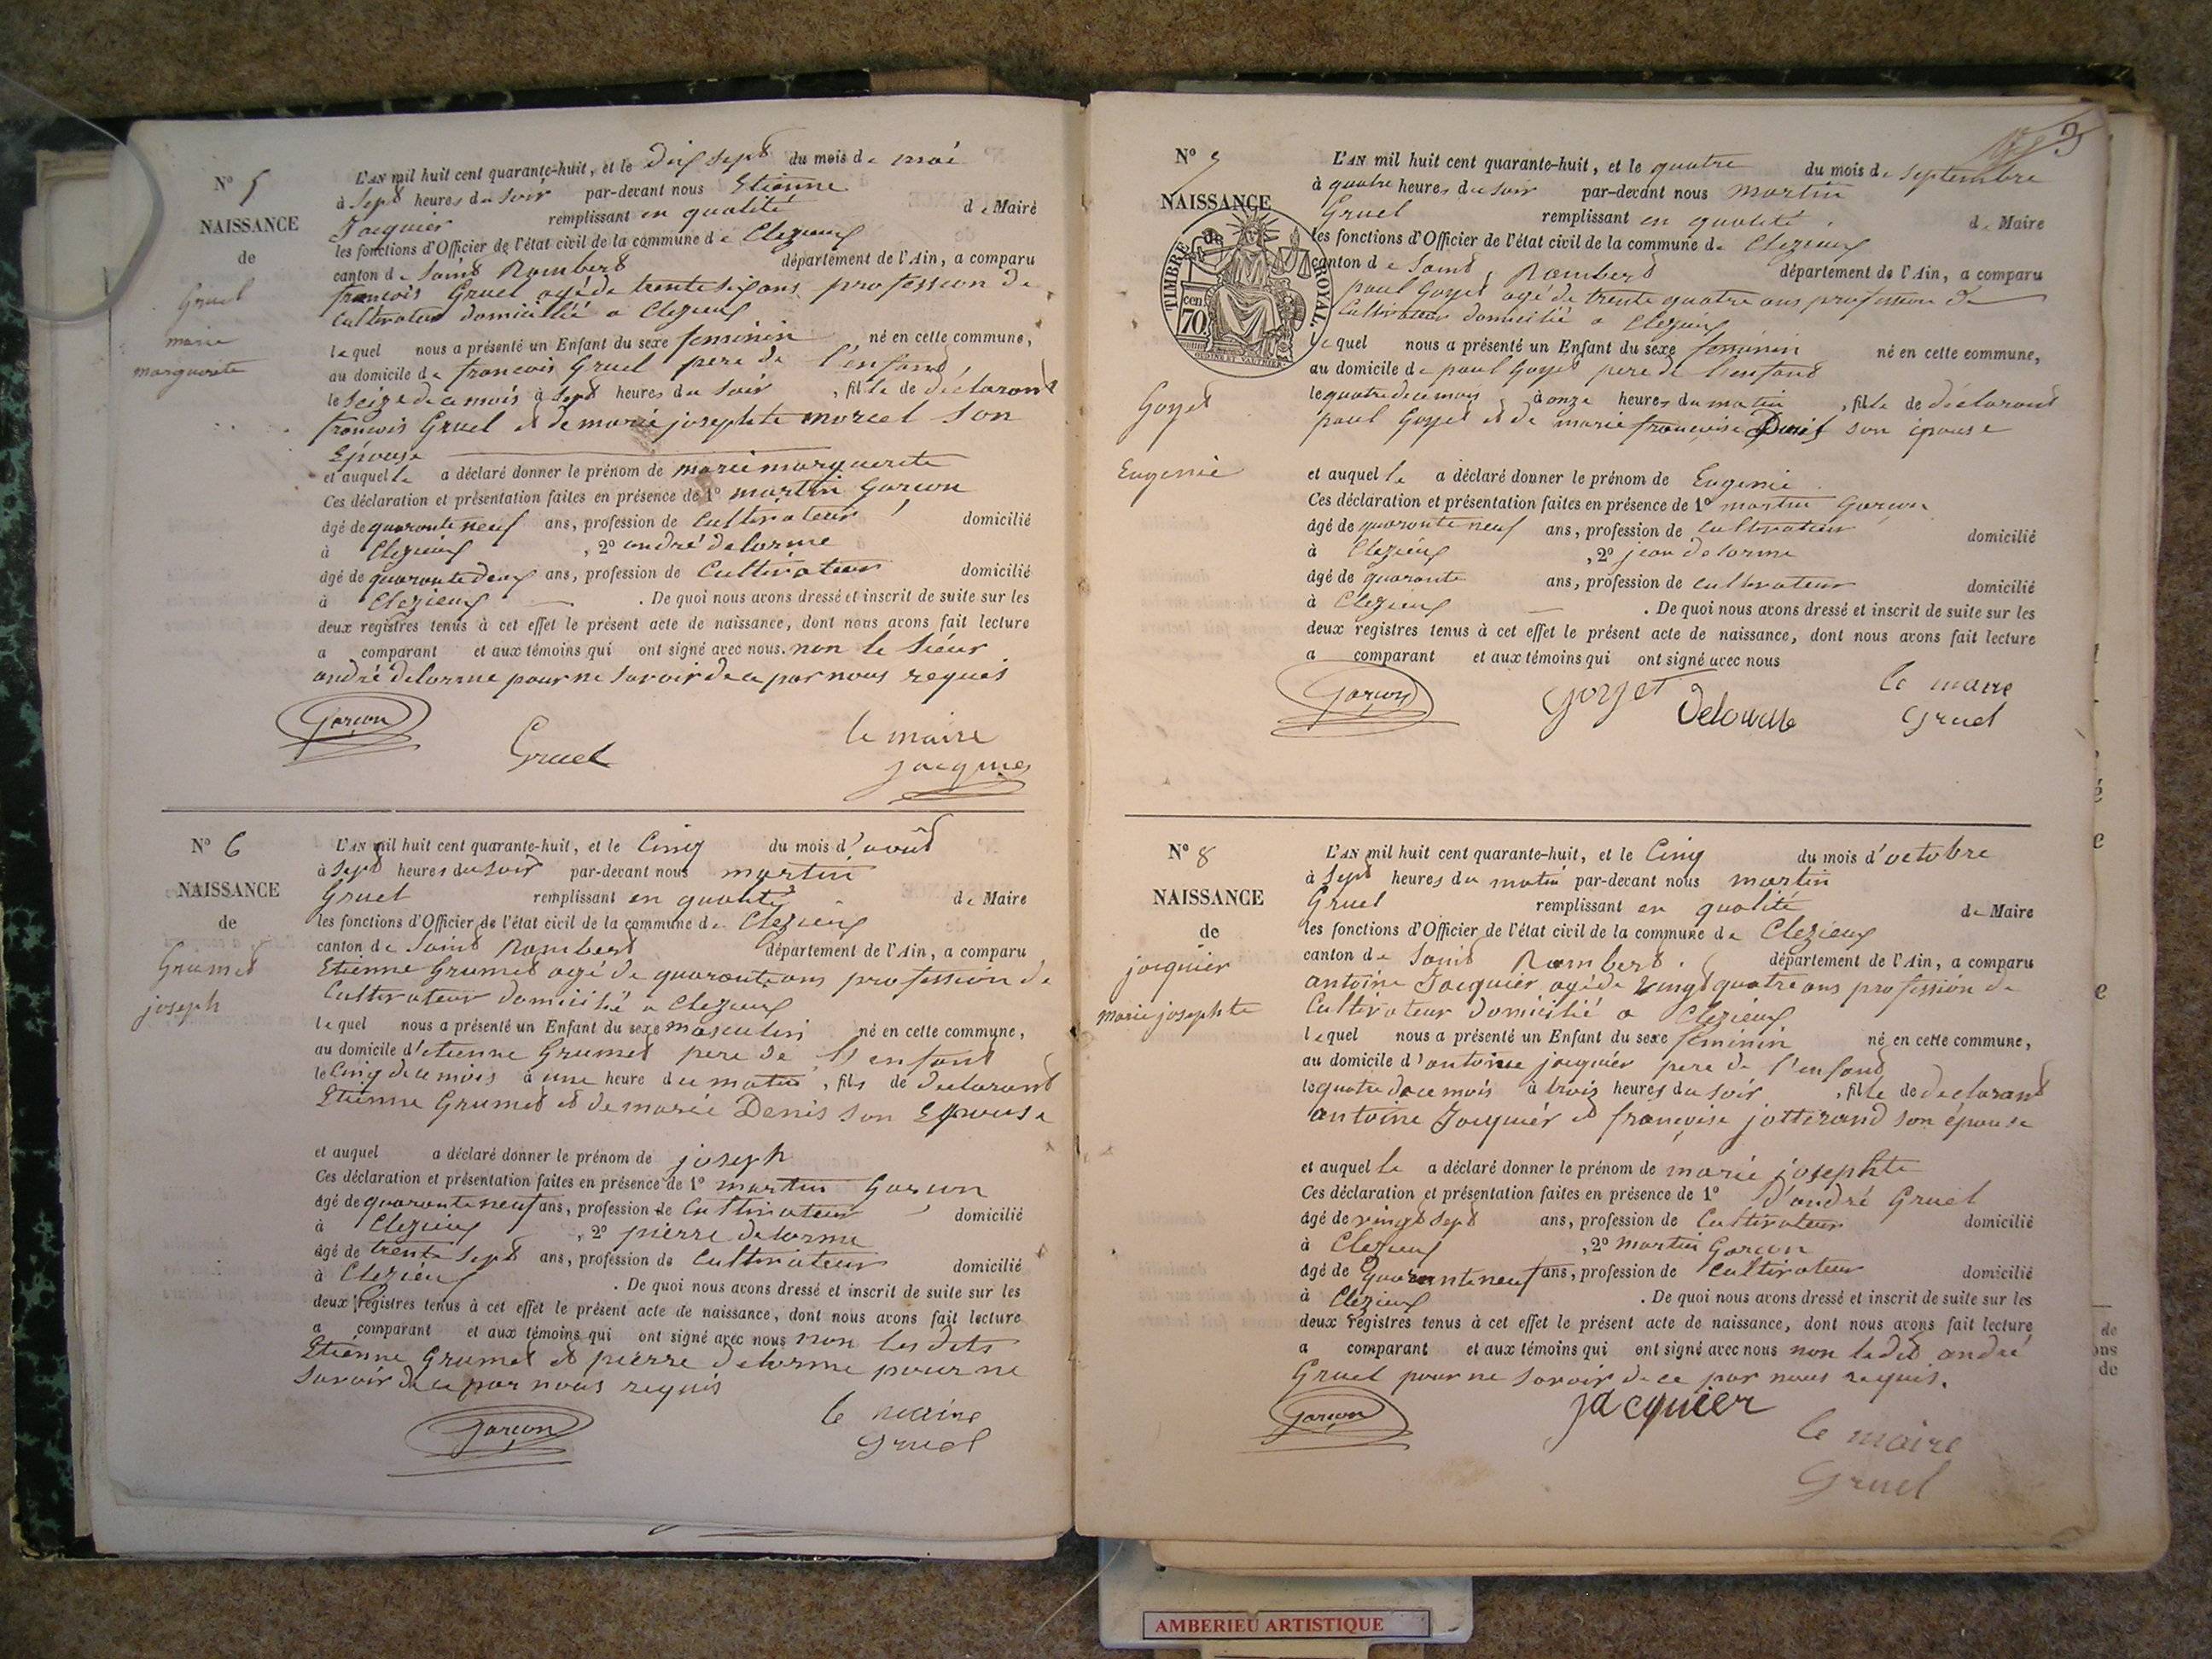 N° 5
NAISSANCE
de
Gruel
marie
marguerite
L'AN mil huit cent quarante-huit, et le dix sept du mois de mai
à sept heures du soir par-devant nous Etienne
Jacquier remplissant en qualité de Maire
les fonctions d'Officier de l'état civil de la commune de Clezieux
canton de Saint Rambert département de l'Ain, a comparu
francois Gruel agé de trente six ans profession de
Cultivateur domicilié a Clezieux
lequel nous a présenté un Enfant du sexe feminin né en cette commune,
au domicile de francois Gruel pere de l'enfant
le Seize de ce mois à sept heures du soir, fille de déclarant
francois Gruel et de marie josephte morcel son
Epouse
et auquel le a déclaré donner le prénom de marie marguerite
Ces déclaration et présentation faites en présence de 1° martin Garçon
âgé de quarante neuf ans, profession de Cultivateur domicilié
à Clezieux, 2° andré delorme
âgé de quarante deux ans, profession de Cultivateur domicilié
à Clezieux. De quoi nous avons dressé et inscrit de suite sur les
deux registres tenus à cet effet le présent acte de naissance, dont nous avons fait lecture
a comparant et aux témoins qui ont signé avec nous. non le Sieur
andré delorme pour ne savoir de ce par nous requis
Garçon
Gruel
le maire
Jacquier
N° 6
NAISSANCE
de
Grumet
joseph
L'AN mil huit cent quarante-huit, et le Cinq du mois d'août
à sept heures du soir par-devant nous martin
Gruel remplissant en qualité de Maire
les fonctions d'Officier de l'état civil de la commune de Clezieux
canton de Saint Rambert département de l'Ain, a comparu
Etienne Grumet agé de quarante ans profession de
Cultivateur domicilié a Clezieux
lequel nous a présenté un Enfant du sexe masculin né en cette commune,
au domicile d'etienne Grumet pere de l'enfant
le Cinq de ce mois à une heure du matin, fils de declarant
Etienne Grumet et de marie Denis son Epouse
et auquel a déclaré donner le prénom de joseph
Ces déclaration et présentation faites en présence de 1° martin Garçon
âgé de quarante neuf ans, profession de Cultivateur domicilié
à Clezieux, 2° pierre delorme
âgé de trente sept ans, profession de Cultivateur domicilié
à Clezieux. De quoi nous avons dressé et inscrit de suite sur les
deux registres tenus à cet effet le présent acte de naissance, dont nous avons fait lecture
a comparant et aux témoins qui ont signé avec nous non les dits
Etienne Grumet et pierre delorme pour ne
savoir de ce par nous requis
Garçon
le maire
Gruel
N° 7
NAISSANCE
de
TIMBRE ROYAL.
70 cen
Goyet
Eugenie
L'AN mil huit cent quarante-huit, et le quatre du mois de septembre
à quatre heures du soir par-devant nous martin
Gruel remplissant en qualité de Maire
les fonctions d'Officier de l'état civil de la commune de Clezieux
canton de Saint Rambert département de l'Ain, a comparu
paul Goyet agé de trente quatre ans profession de
Cultivateur domicilié a Clezieux
lequel nous a présenté un Enfant du sexe feminin né en cette commune,
au domicile de paul Goyet pere de l'enfant
le quatre de ce mois à onze heures du matin, fille de déclarant
paul Goyet et de marie francoise Denis son épouse
et auquel le a déclaré donner le prénom de Eugenie
Ces déclaration et présentation faites en présence de 1° martin Garçon
âgé de quarante neuf ans, profession de Cultivateur domicilié
à Clezieux, 2° jean delorme
âgé de quarante ans, profession de cultivateur domicilié
à Clezieux. De quoi nous avons dressé et inscrit de suite sur les
deux registres tenus à cet effet le présent acte de naissance, dont nous avons fait lecture
a comparant et aux témoins qui ont signé avec nous
Garçon
goyet
Delorme
le maire
Gruel
N° 8
NAISSANCE
de
jacquier
marie josephte
L'AN mil huit cent quarante-huit, et le Cinq du mois d'octobre
à Sept heures du matin par-devant nous martin
Gruel remplissant en qualité de Maire
les fonctions d'Officier de l'état civil de la commune de Clezieux
canton de Saint Rambert département de l'Ain, a comparu
antoine Jacquier agé de vingt quatre ans profession de
Cultivateur domicilié a Clezieux
lequel nous a présenté un Enfant du sexe feminin né en cette commune,
au domicile d'antoine jacquier pere de l'enfant
le quatre de ce mois à trois heures du soir, fille de declarant
antoine Jacquier et françoise jotterand son épouse
et auquel le a déclaré donner le prénom de marie josephte
Ces déclaration et présentation faites en présence de 1° d'andré Gruel
âgé de vingt sept ans, profession de Cultivateur domicilié
à Clezieux, 2° martin Garçon
âgé de quarante neuf ans, profession de Cultivateur domicilié
à Clezieux. De quoi nous avons dressé et inscrit de suite sur les
deux registres tenus à cet effet le présent acte de naissance, dont nous avons fait lecture
a comparant et aux témoins qui ont signé avec nous non ledit andré
Gruel pour ne savoir de ce par nous requis.
Garçon
jacquier
le maire
Gruel
AMBERIEU ARTISTIQUE